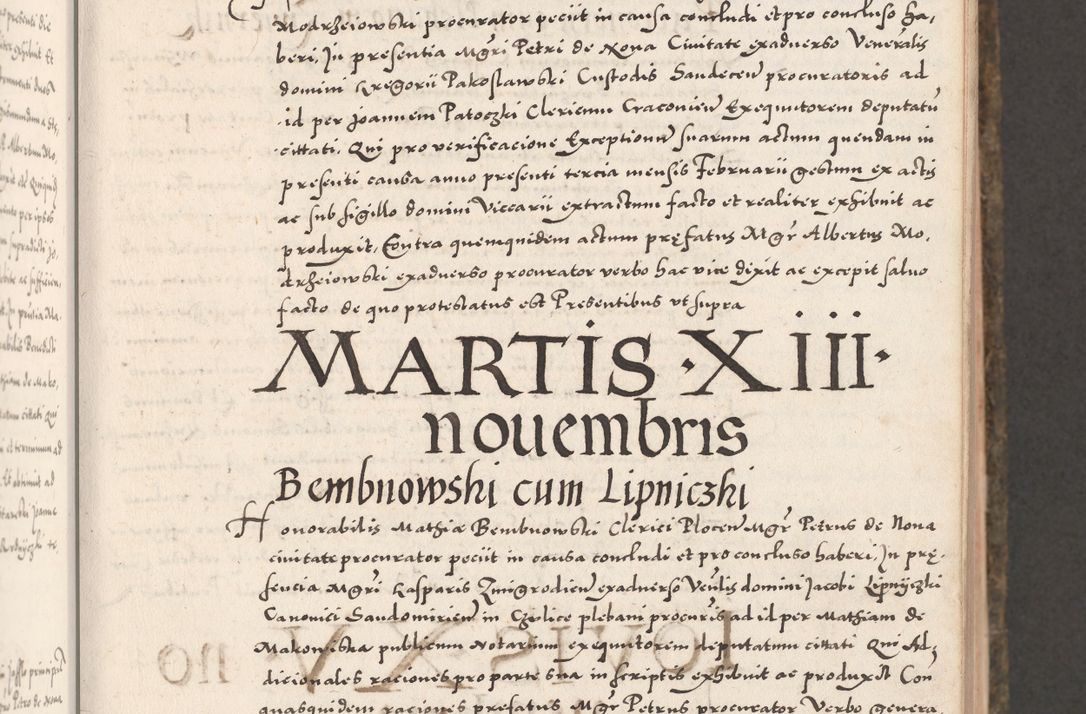 Modrzeiowski procurator peciit in causa concludi et pro concluso ha,
beri, In presentia Mgri Petri de Nona Civitate exadverso Veneralis
domini Gregorii Pakoslawski Custodis Sandecen procuratoris ad
id per Joannem Patoczki Clericum Cracovien Exequutorem deputatu
cittati, Qui pro verificacione Exceptionum suarum actum quendam in
presenti causa anno presenti tercia mensis Februarii gestum ex actis
ac sub sigillo domini Viccarii extractum facto et realiter exhibuit ac
produxit, Contra quemquidem actum pręfatus Mgr Albertus Mo,
drzeiowski exadverso procurator verbo hac vice dixit ac excepit salvo
facto de quo protestatus est Presentibus ut supra
MARTIS · XIII ·
nouembris
Bembnowski cum Lipniczki
Honorabilis Mathiæ Bembnowski Clerici Plocen Mgr Petrus de Nona
civitate procurator peciit in causa concludi et pro concluso haberi, In prę,
sencia Mgri Kasparis Zmigrodien exadverso Venlis domini Jacobi Lipnyczki
Canonici Sandomirien in plebani procuris ad id per Mathiam de
Makowiska publicum Notarium exequutorem deputatum cittati Qui Ad,
dicionales raciones pro parte sua in scriptis exhibuit ac produxit Con
quasquidem raciones prefatus Mgr Petrus procurator Verbo genera,